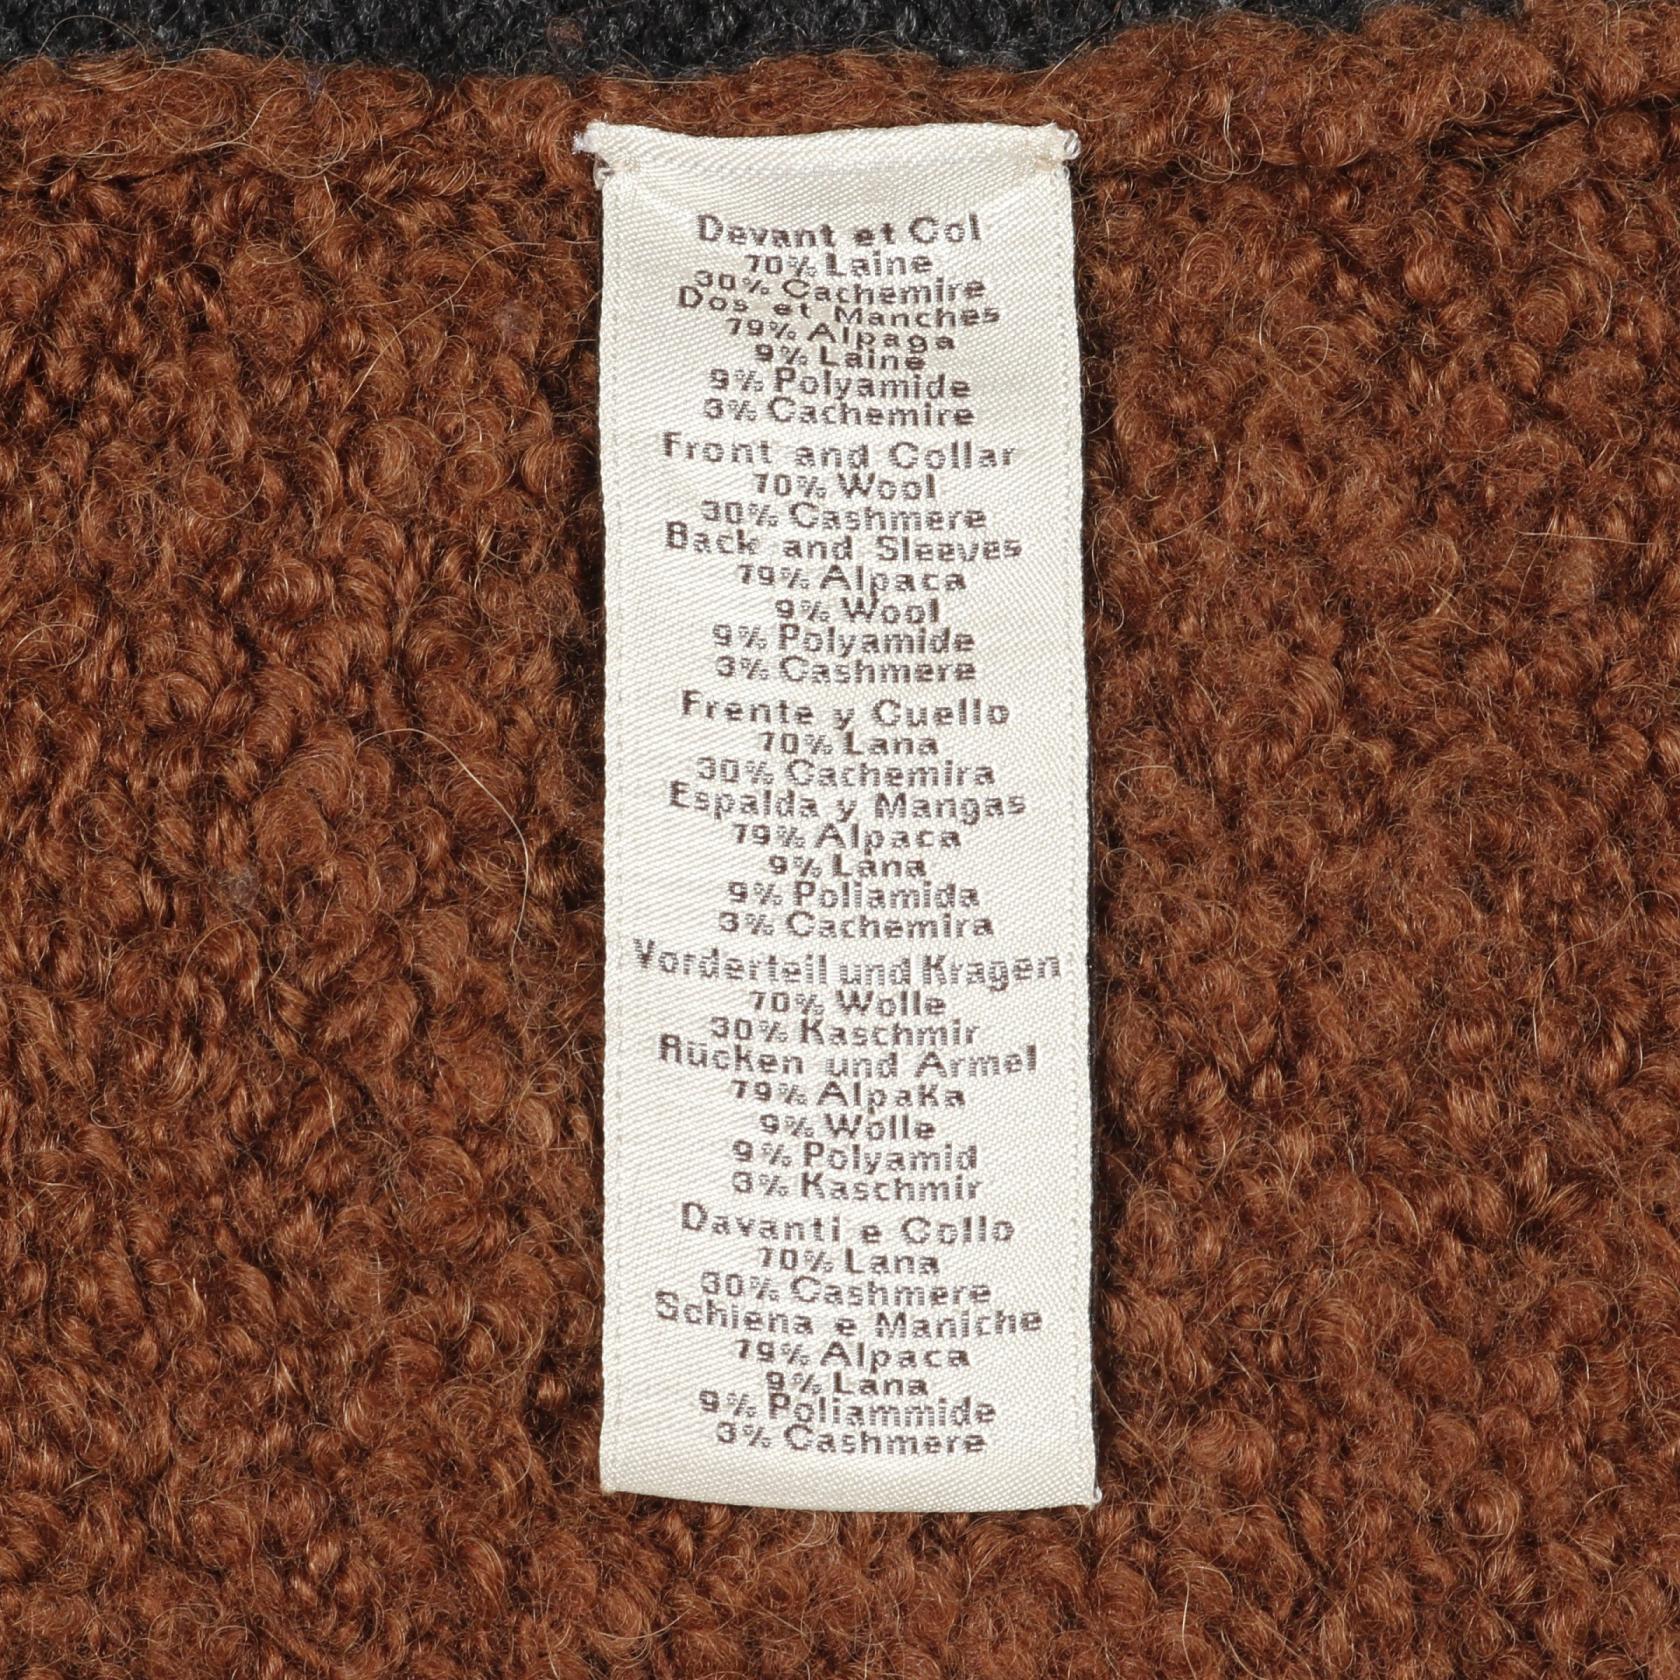 Devant et Col
70% Laine
30% Cachemire
Dos et Manches
79% Alpaga
9% Laine
9% Polyamide
3% Cachemire
Front and Collar
70% Wool
30% Cashmere
Back and Sleeves
79% Alpaca
9% Wool
9% Polyamide
3% Cashmere
Frente y Cuello
70% Lana
30% Cachemira
Espalda y Mangas
79% Alpaca
9% Lana
9% Poliamida
3% Cachemira
Vorderteil und Kragen
70% Wolle
30% Kaschmir
Rücken und Armel
79% AlpaKa
9% Wolle
9% Polyamid
3% Kaschmir
Davanti e Collo
70% Lana
30% Cashmere
Schiena e Maniche
79% Alpaca
9% Lana
9% Poliammide
3% Cashmere